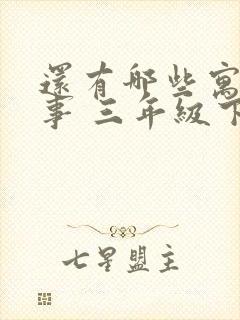 還有哪些寓
事 三年級下
七星盟主